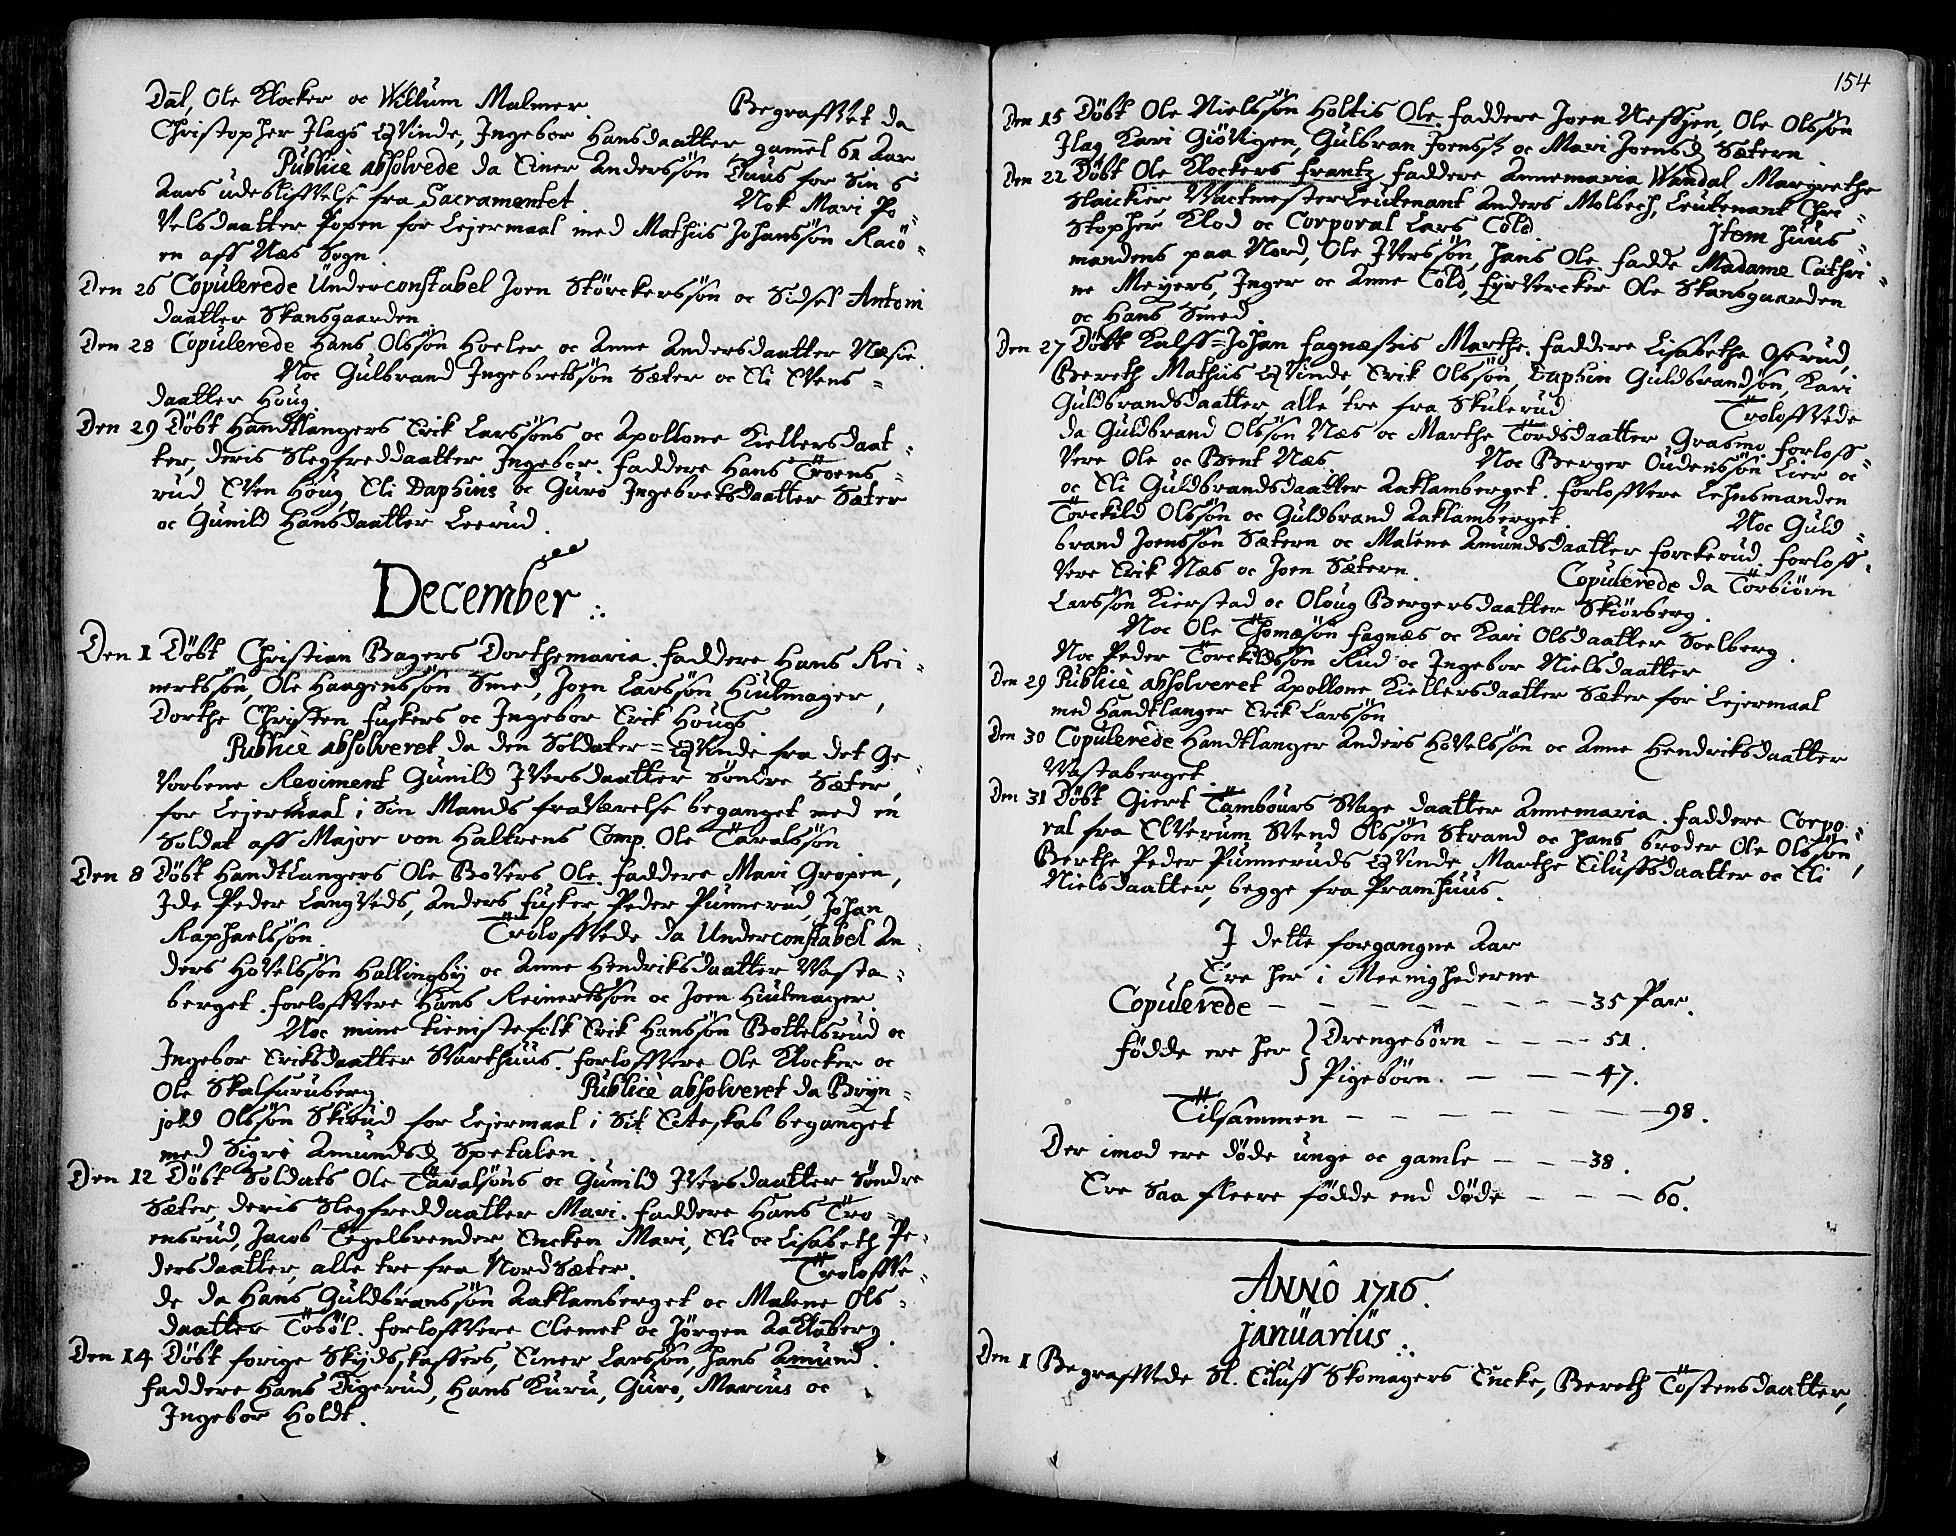 Dal, Ole Klocker oc Willum Malmer. Begraffvet da
Christopher Flags Qvinde, Ingebor Hansdaatter gammel 61 Aar
Publicè absolvede da Einer Anderssön Duus for Sin 6
Aars udeblifvelse fra Sacramentet. Nok Mari Po-
velsdaatter Popen for Lejermaal med Mathiis Johanssön Racö-
en aff Næs Sogn.
Den 26 Copulerede Underconstabel Joen Störckerssön oc Sidsel Antoni
daatter Skansgaarden
Den 28 Copulerede Hans Olssön Hoeler oc Anne Andersdaatter Næsie.
Noc Gulbrand Ingebretssön Sæter oc Eli Evens-
daatter Houg
Den 29 Döbt Handtlangers Erik Larssöns oc Apollone Kiellersdaat-
ter, deris Slegfreddaatter Ingebor. Faddere Hans Troens-
rud, Even Houg, Eli Daphins oc Guro Ingebretsdaatter Sæter
oc Gunild Hansdaatter Leerud.
December
Den 1 Döbt Christian Bagers Dorthemaria. Faddere Hans Rei-
nertssön, Ole Haagenssön Smed, Joen Larssön Hiulmager,
Dorthe Christen Fuskers oc Ingebor Erik Hougs
Publicè absolveret da den Soldater-Qvinde fra det Ge-
vorbene Regiment Gunild Iversdaatter Söndre Sæter,
for Lejermaal i Sin Mands fraværelse beganget med en
Soldat aff Major von Haltrens Comp. Ole Taralssön
Den 8 Döbt Handtlangers Ole Bovers Ole. Faddere Mari Gropen,
Ide Peder Langveds, Anders Fusker, Peder Punnerud, Johan
Raphaelssön. Trolofvede da Underconstabel An-
ders Hovelssön Hallingbÿ oc Anne Hendriksdaatter Vasta-
berget. Forloffvere Hans Reinertssön oc Joen Hiulmager.
Noc mine tienistefolk Erik Hanssön Bottelsrud oc
Ingebor Eriksdaatter Svarthuus. Forloffvere Ole Klocker oc
Ole Skalfuruberg. Publicè absolveret da Brÿn-
jold Olssön Skirud for Lejermaal i Sit Ecteskab beganget
med Sigri Amundsd Spetalen.
Den 12 Döbt Soldats Ole Taralsöns oc Gunild Iversdaatter Söndre
Sæter deris Slegfreddaatter Mari. Faddere Hans Tro-
ensrud, Jacob Tegelbrender Encken Mari, Eli oc Lisabeth Pe-
dersdaatter, alle tre fra NordSæter. Troloffve-
de da Hans Guldbranssön Aaklamberget oc Malene Ols-
daatter Tosöl. Forloffvere Clemet oc Jörgen Aaklaberg.
Den 14 Döbt forige Skÿdsskaffers, Einer Larssön, hans Amund.
Faddere Hans Digerud, Hans Kuru, Guro, Marius oc
Ingebor Holdt.
154
Den 15 Döbt Ole Nielssön Holtis Ole. Faddere Joen Nessien, Ole Olssön
Flag Kari Giövigen, Gulbran Joenss: oc Mari Joensd Sætern.
Den 22 Döbt Ole Klockers Frantz Faddere Annemaria Wandal Margrethe
Slaickier Vactmester Leutenant Anders Molbech, Leutenant Chri-
Stopher Klod oc Corporal Lars Cold. Item Huus-
mandens paa Nord, Ole Iverssön, hans Ole fadde Madame Cathri-
ne Meyers, Inger oc Anne Cold, Fyrvercker Ole Skansgaarden
oc Hans Smed.
Den 27 Döbt Kalff-Johan Fagnæssis Marthe. Faddere Lisabethe Oserud,
Bereth Mathiis Qvinde, Erik Olssön, Daphin Guldbrandsön, Kari
Guldbrandsdaatter, alle tre fra Skulerud. Troloffvede
da Guldbrand Olssön Næs oc Marthe Tordsdaatter Grasmo. Forloff-
vere Ole oc Bent Næs. Noc Berger Oudenssön Lier oc
oc Eli Guldbrandsdaatter Aaklamberget. Forloffvere Lehnsmanden
Torckild Olssön oc Guldbrand Aaklamberget. Noc Guld-
brand Joenssön Sætern oc Malene Amundsdaatter Forckerud. Forloff-
vere Erik Næs oc Joen Sætern. Copulerede da Torbiörn
Larssön Kierstad oc Oloug Bergersdaatter Skiörberg.
Noc Ole Thomæsön Fagnæs oc Kari Olsdaatter Soelberg.
Noc Peder Torckildssön Rud oc Ingebor Nielsdaatter
Den 29 Publicè absolveret Apollone Kiellersdaatter Sæter for Lejermaal
med Handtlanger Erik Larssön
Den 30 Copulerede Handtlanger Anders Hovelssön oc Anne Hendriksdaatter
Vastaberget.
Den 31 Döbt Giert Tambours Svage daatter Annemaria. Faddere Corpo-
ral fra Elverum Svend Olssön Strand oc hans broder Ole Olssön,
Berthe Peder Punneruds Qvinde, Marthe Eiluffsdaatter oc Eli
Nielsdaatter, begge fra Pramhuus.
I dette forgangne Aar
Ere her i Meenighederne
Copulerede - - - - - - - - 35 Par.
Födde ere her } Drengebörn - - - - 51.
} Pigebörn. - - - - 47.
Tilsammen - - - - - - - 98.
Der imod ere döde unge oc gamle - - - 38.
Ere Saa fleere födde end döde - - - - 60.
ANNÔ 1716.
januarius
Den 1 Begraffvede Sl. Eiluff Skomagers Encke, Bereth Tostensdaatter,